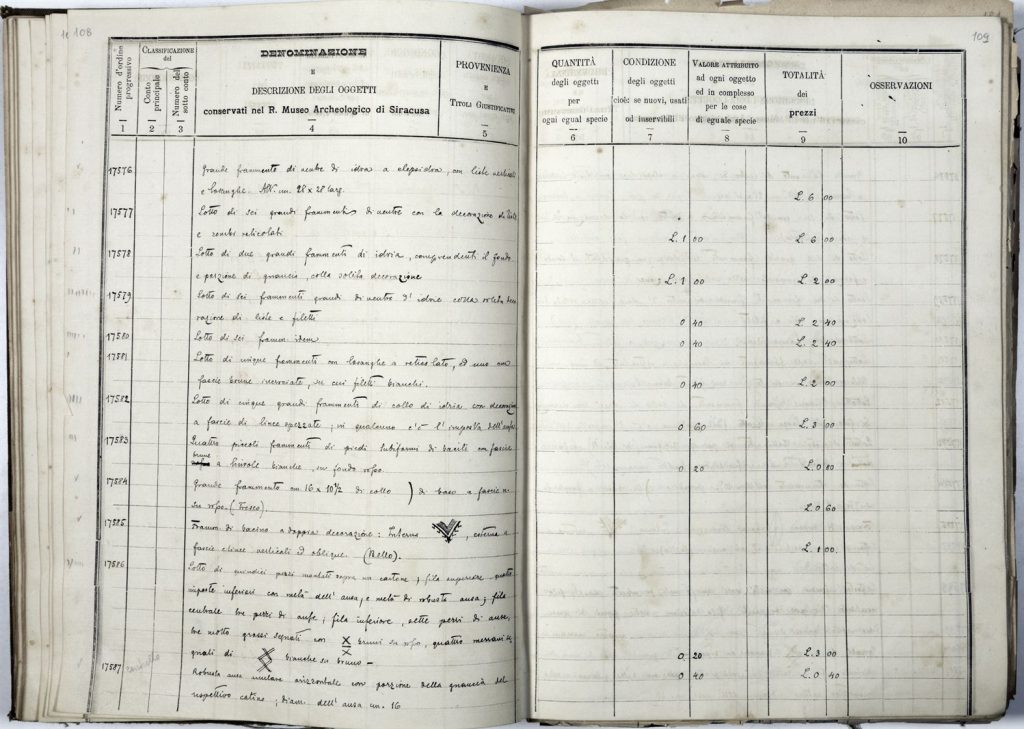 108
Numero d'ordine progressivo
CLASSIFICAZIONE del
Conto principale
Numero del sotto conto
DENOMINAZIONE
E
DESCRIZIONE DEGLI OGGETTI
conservati nel R. Museo Archeologico di Siracusa
PROVENIENZA
E
TITOLI GIUSTIFICATIVI
1 2 3 4 5
17576 Grande frammento di ventre di idria a clepsidra, con liste verticali
e losanghe. 28 x 28 larg.
17577 Lotto di sei grandi frammenti di ventre con la decorazione di liste
e rombi reticolati
17578 Lotto di due grandi frammenti di idria, comprendenti il fondo
e porzione di guancia, colla solita decorazione
17579 Lotto di sei frammenti grandi di ventre d'idrie colla solita deco
razione di liste e filetti
17580 Lotto di sei framm. idem
17581 Lotto di cinque frammenti con losanghe a reticolato, ed uno con
fascie brune incrociate, su cui filetti bianchi.
17582 Lotto di cinque grandi frammenti di collo di idria con decorazione
a fascie di linee spezzate; in qualcuno c'è l'imposta dell'ansa
17583 Quattro piccoli frammenti di piedi tubiformi di bacili con fascie
brune a lineole bianche, su fondo rosso.
17584 Grande frammento cm 16 x 10½ di collo ) di vaso a fascie n.
su rosso. (Fresco).
17585 Framm. di bacino a doppia decorazione: Interno , esterno a
fascie e linee verticali ed oblique. (Bello).
17586 Lotto di quindici pezzi montati sopra un cartone; fila superiore, quattro
imposte inferiori con metà dell'ansa, e metà di robusta ansa; fila
centrale tre pezzi di anse; fila inferiore, sette pezzi di anse,
tre molto grossi segnati con bruni su rosso, quattro mezzani se
gnati di bianche su bruno –
17587 Robusta ansa anulare orizzontale con porzione della guancia del
rispettivo catino; diam. dell'ansa cm. 16
109
QUANTITÀ
degli oggetti
per
ogni egual specie
CONDIZIONE
degli oggetti
cioè: se nuovi, usati
od inservibili
VALORE ATTRIBUITO
ad ogni oggetto
ed in complesso
per le cose
di eguale specie
TOTALITÀ
dei
prezzi
OSSERVAZIONI
6 7 8 9 10
L. 6 00
L. 1 00 L. 6 00
L. 1 00 L. 2 00
0 40 L. 2 40
0 40 L. 2 40
0 40 L. 2 00
0 60 L. 3 00
0 20 L. 0 80
L. 0 60
L. 1 00.
0 20 L. 3 00
0 40 L. 0 40